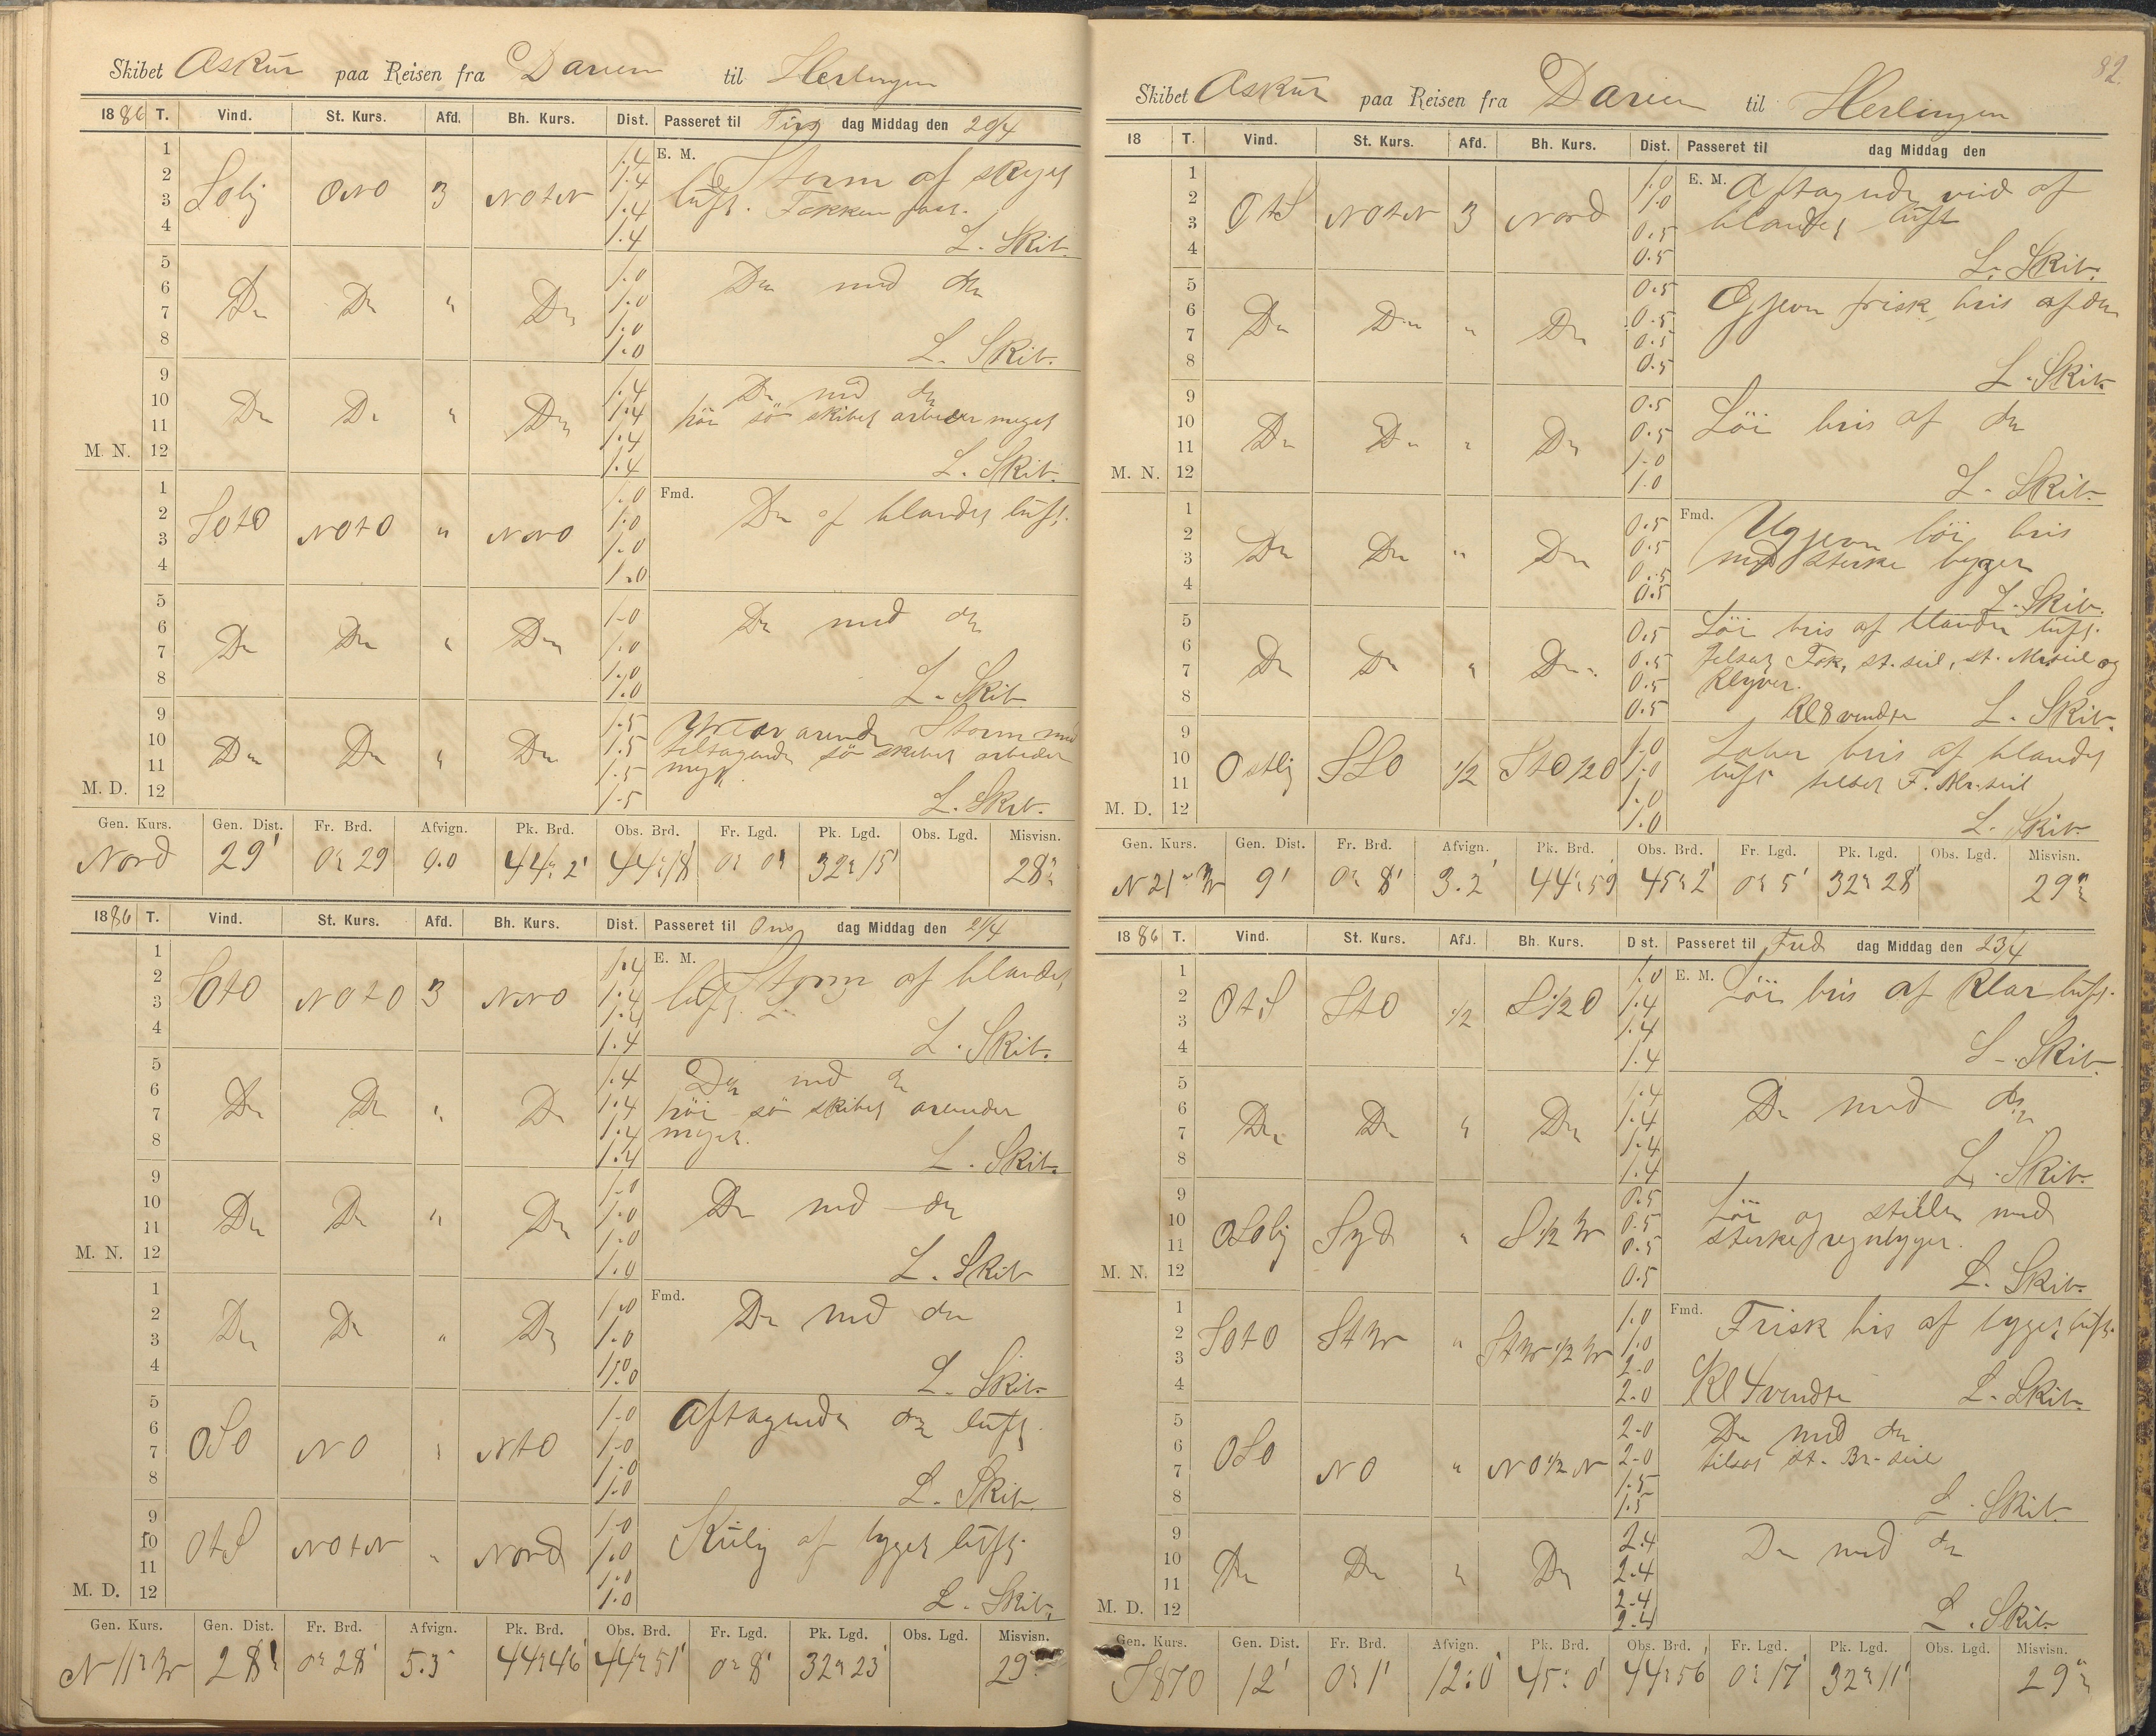 Skibet Askur paa Reisen fra Darien til Herlingen
1886 T. Vind. St. Kurs. Afd. Bh. Kurs. Dist. Passeret til Tirs dag Middag den 20/4
1 1.4 E. M. Storm af skyet
2 1.4 luft. Fokken fast.
Soly ONO 3 NOtN
3 1.4
4 1.4 L. Skib.
5 1.0
6 Do Do " Do 1.0 Do med do
7 1.0
8 1.0 L. Skib.
9 1.4 Do med do
10 Do Do " Do 1.4 höi sö skibet arbeider meget
11 1.4
M. N. 12 1.4 L. Skib.
1 1.0 Fmd.
2 SOtO NOtO " NNO 1.0 Do af blandet luft.
3 1.0
4 1.0
5 1.0
6 Do Do " Do 1.0 Do med do
7 1.0
8 1.0 L. Skib
9 1.5 Storm med
10 Do Do " Do 1.5 tiltagende sö skibet arbeider
11 1.5 meget
M. D. 12 1.5 L. Skib.
Gen. Kurs. Gen. Dist. Fr. Brd. Afvign. Pk. Brd. Obs. Brd. Fr. Lgd. Pk. Lgd. Obs. Lgd. Misvisn.
Nord 29' 0° 29 0.0 44° 2' 44° 18' 0° 0' 32° 15' 28°
1886 T. Vind. St. Kurs. Afd. Bh. Kurs. Dist. Passeret til Ons dag Middag den 21/4
1 1.4 E. M. Storm af blandet
2 SOtO NOtO 3 NNO 1.4 luft.
3 1.4
4 1.4 L. Skib.
5 1.4 Do med do
6 Do Do " Do 1.4 höi sö skibet
7 1.4 meget.
8 1.4 L. Skib.
9 1.0
10 Do Do " Do 1.0 Do med do
11 1.0
M. N. 12 1.0 L. Skib
1 Fmd.
2 Do Do " Do 1.0 Do med do
3 1.0
4 1.0 L. Skib.
5 1.0 Aftagende do luft.
6 OSO NO " NtO 1.0
7 1.0
8 1.0 L. Skib.
9 1.0 Kulig af bygget luft.
10 OtS NOtN " Nord 1.0
11 1.0
M. D. 12 1.0 L. Skib.
Gen. Kurs. Gen. Dist. Fr. Brd. Afvign. Pk. Brd. Obs. Brd. Fr. Lgd. Pk. Lgd. Obs. Lgd. Misvisn.
N 11° W 28' 0° 28' 5.5 44° 46' 44° 51' 0° 8' 32° 23' 29°
82
Skibet Askur paa Reisen fra Darien til Herlingen
18 T. Vind. St. Kurs. Afd. Bh. Kurs. Dist. Passeret til dag Middag den
1 1.0 E. M. Aftagende vind af
2 OtS NOtN 3 Nord 1.0 blandet luft
3 0.5
4 0.5 L. Skib.
5 0.5 Ojevn frisk bris af do
6 Do Do " Do 0.5
7 0.5
8 0.5 L. Skib
9 0.5 Löi bris af do
10 Do Do " Do 0.5
11 1.0
M. N. 12 1.0 L. Skib.
1 0.5 Fmd. Ugjevn löi bris
2 Do Do " Do 0.5 med sterke byger
3 0.5
4 0.5 L. Skib.
5 0.5 Löi bris af blandet luft.
6 Do Do " Do 0.5 tilsat Fok, st. seil, st. Mr.seil og
7 0.5 Klyver.
8 0.5 Kl 8 vendte L. Skib.
9 1.0 Laber bris af blandet
10 Ostlig SSO 1/2 StO 1/2 O 1.0 luft tilsat F. Mr. seil
11 1.0
M. D. 12 1.0 L. Skib.
Gen. Kurs. Gen. Dist. Fr. Brd. Afvign. Pk. Brd. Obs. Brd. Fr. Lgd. Pk. Lgd. Obs. Lgd. Misvisn.
N 21° W 9' 0° 8' 3.2' 44° 59 45° 2' 0° 5' 32° 28' 29°
1886 T. Vind. St. Kurs. Afd. Bh. Kurs. Dist. Passeret til Fred dag Middag den 23/4
1 1.0 E. M. Löi bris af Klar luft.
2 OtS StO 1/2 S 1/2 O 1.4
3 1.4
4 1.4 L. Skib
5 1.4
6 Do Do " Do 1.4 Do med do
7 1.4
8 1.4 L. Skib.
9 0.5 Löi og stille med
10 OSOlig Syd " S 1/2 W 0.5 sterke regnbyger.
11 0.5
M. N. 12 0.5 L. Skib.
1 1.0 Fmd. Frisk bris af bygget luft.
2 SOtO StW " StW 1/2 W 1.0
3 2.0
4 2.0 Kl 4 vendte L. Skib.
5 2.0 Do med do
6 OSO NO " NO 1/2 N 2.0 tilsat st. Br. seil
7 1.5
8 1.5 L. Skib.
9 2.4
10 Do Do " Do 2.4 Do med do
11 2.4
M. D. 12 2.4 L. Skib.
Gen. Kurs. Gen. Dist. Fr. Brd. Afvign. Pk. Brd. Obs. Brd. Fr. Lgd. Pk. Lgd. Obs. Lgd. Misvisn.
S 87 O 12' 0° 1' 12.0' 45° 0' 44° 56' 0° 17' 32° 11' 29°